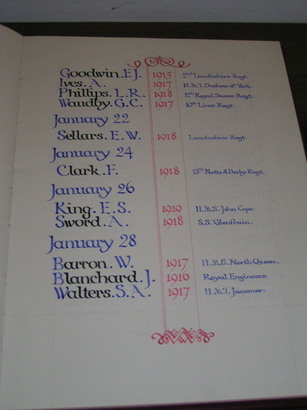 Goodwin. F. J. 1915 2nd Lincolnshire Regt.
Ives. A. 1917 H.M.T. Duchess of York.
Phillips. L. R. 1918 12th Royal Sussex Regt.
Waudby. G. C. 1917 10th Lincs. Regt.
January 22
Sellars. E. W. 1918 Lincolnshire Regt.
January 24
Clark. F. 1918 15th Notts & Derby Regt.
January 26
King. E. S. 1919 H.M.S.
Sword. A. 1918 S.S.
January 28
Barron. W. 1917 H.M.S. North Queen.
Blanchard. J. 1916 Royal Engineers.
Walters. S. A. 1917 H.M.T.